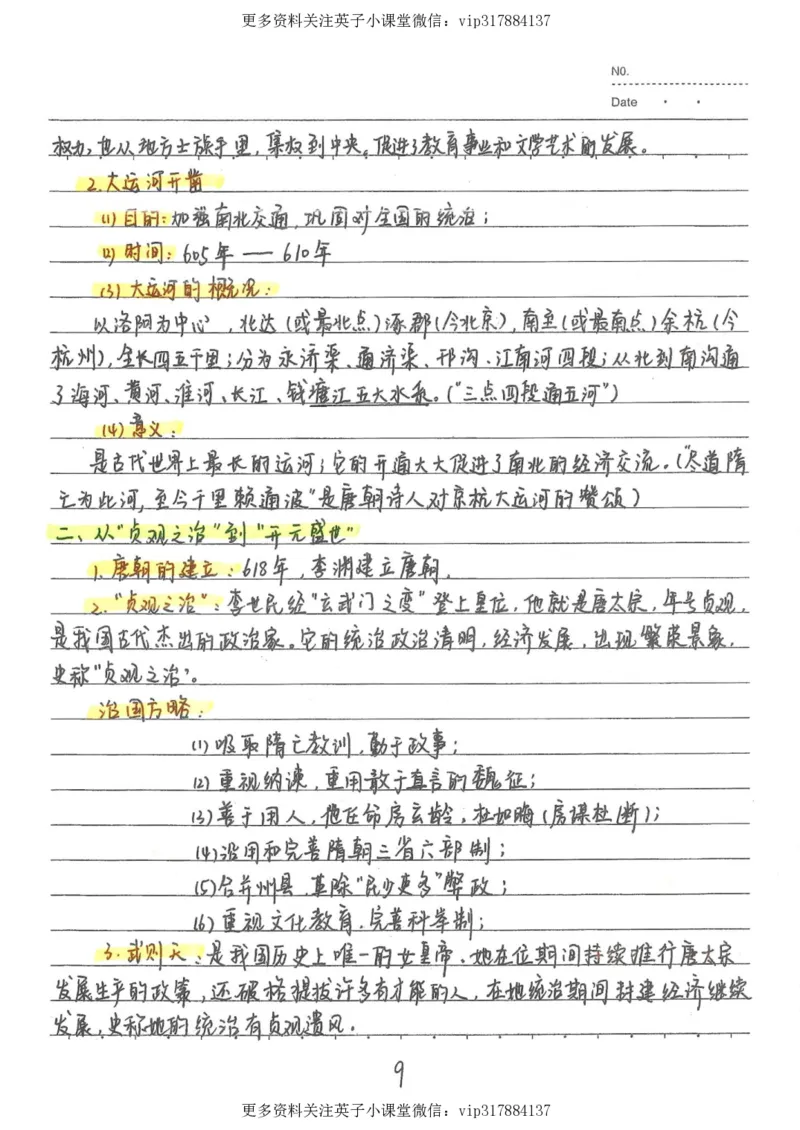 更多资料关注英子小课堂微信：vip317884137
N0.
Date
权力，也从地方士族手里，集权到中央。促进了教育事业和文学艺术的发展。
2.大运河开凿
(1)目的：加强南北交通，巩固对全国的统治；
(2)时间：605年——610年
(3)大运河的概况：
以洛阳为中心，北达(或最北点)涿郡(今北京)，南至(或最南点)余杭(今
杭州)，全长四五千里；分为永济渠、通济渠、邗沟、江南河四段；从北到南沟通
了海河、黄河、淮河、长江、钱塘江五大水系。("三点四段通五河")
(4)意义：
是古代世界上最长的运河；它的开通大大促进了南北的经济交流。("尽道隋
亡为此河，至今千里赖通波"是唐朝诗人对京杭大运河的赞颂)
二、从"贞观之治"到"开元盛世"
1.唐朝的建立：618年，李渊建立唐朝。
2."贞观之治"：李世民经"玄武门之变"登上皇位，他就是唐太宗，年号贞观，
是我国古代杰出的政治家。它的统治政治清明，经济发展，出现繁荣景象，
史称"贞观之治"。
治国方略：
(1)吸取隋亡教训，勤于政事；
(2)重视纳谏，重用敢于直言的魏征；
(3)善于用人，他任命房玄龄，杜如晦(房谋杜断)；
(4)沿用和完善隋朝三省六部制；
(5)合并州县，革除"民少吏多"弊政；
(6)重视文化教育，完善科举制；
3.武则天：是我国历史上唯一的女皇帝、她在位期间持续推行唐太宗
发展生产的政策，还破格提拔许多有才能的人，在她统治期间封建经济继续
发展，史称她的统治有贞观遗风。
9
更多资料关注英子小课堂微信：vip317884137